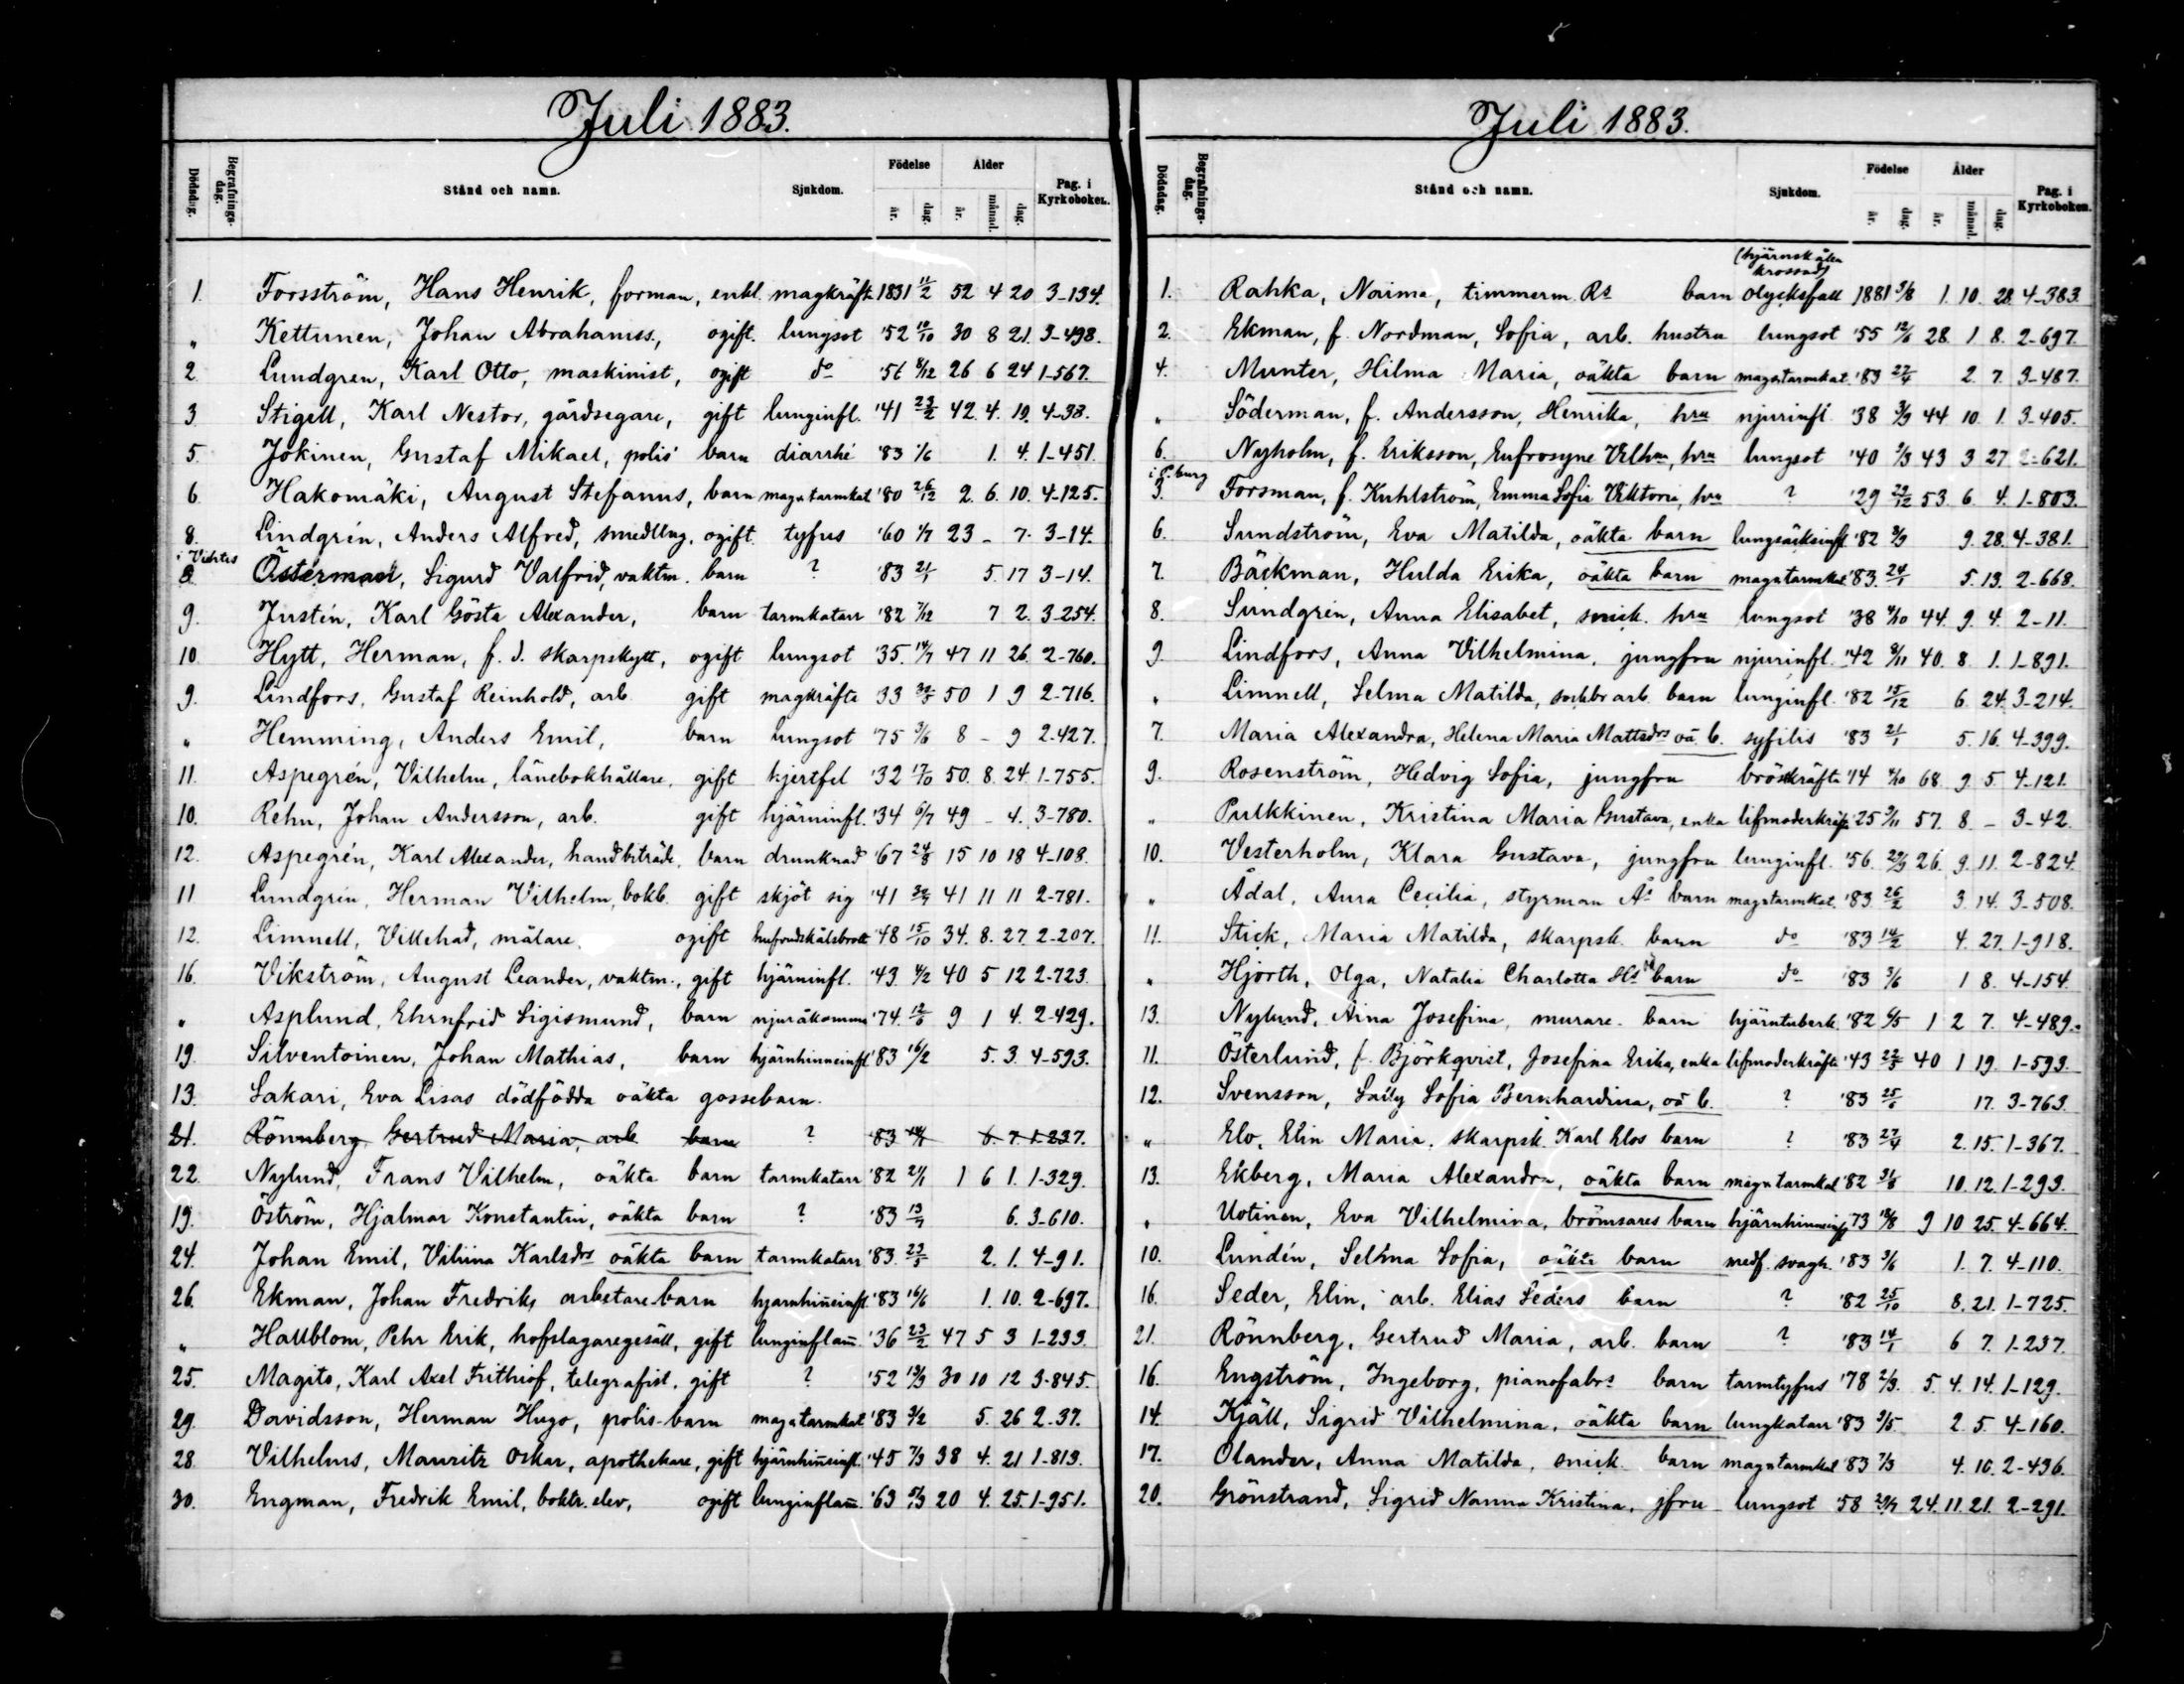 Juli 1883.
Dödsdag. Begrafnings-dag. Stånd och namn. Sjukdom. Födelse år. dag. Ålder år. månad. dag. Pag. i Kyrkoboken.
1. Forsström, Hans Henrik, forman, enkl. magkräfta 1831 11/2 52 4 20 3-134.
" Kettunen, Johan Abrahamss., ogift. lungsot '52 10/10 30 8 21. 3-498.
2. Lundgren, Karl Otto, maskinist, ogift do '56 8/12 26 6 24 1-567.
3. Stigell, Karl Nestor, gårdsegare, gift lunginfl. '41 23/2 42. 4. 10. 4-38.
5. Jokinen, Gustaf Mikael, polis barn diarrhé '83 1/6 1. 4. 1-451.
6. Hakomäki, August Stefanus, barn mag.tarmkat. '80 26/12 2. 6. 10. 4-125.
8. Lindgrén, Anders Alfred, smedllng, ogift. tyfus '60 1/7 23 - 7. 3-14.
i Vichtis
8. Österman, Sigurd Valfrid, vaktm. barn ? '83 21/1 5. 17 3-14.
9. Justén, Karl Gösta Alexander, barn tarmkatarr '82 7/12 7 2. 3-254.
10. Hytt, Herman, f. d. skarpskytt, ogift lungsot '35. 14/7 47 11 26. 2-760.
9. Lindfors, Gustaf Reinhold, arb. gift magkräfta '33 30/5 50 1 9 2-716.
" Hemming, Anders Emil, barn lungsot '75 3/6 8 - 9 2-427.
11. Aspegrén, Vilhelm, lånebokhållare, gift hjertfel '32 17/10 50. 8. 24. 1-755.
10. Rehn, Johan Andersson, arb. gift hjärninfl. '34 6/7 49 - 4. 3-780.
12. Aspegrén, Karl Alexander, handbiträde, barn drunknad '67 24/8 15 10 18 4-108.
11 Lundgrén, Herman Vilhelm, bokb. gift skjöt sig '41 30/7 41 11 11 2-781.
12. Limnell, Villehad, målare, ogift hufvudskålsbrott '48 15/10 34. 8. 27. 2-207.
16. Vikström, August Leander, vaktm., gift hjärninfl. '43. 4/2 40 5 12 2-723.
" Asplund, Ehrnfrid Sigismund, barn njuråkomma '74. 12/6 9 1 4. 2-429.
19. Silventoinen, Johan Mathias, barn hjärnhinneinfl. '83 16/2 5. 3. 4-593.
13. Sakari, Eva Lisas dödfödda oäkta gossebarn.
21. Rönnberg, Gertrud Maria, arb. barn ? '83 14/1 6. 7. 1-237.
22. Nylund, Frans Vilhelm, oäkta barn tarmkatarr '82 21/1 1 6 1. 1-329.
19. Öström, Hjalmar Konstantin, oäkta barn ? '83 13/7 6. 3-610.
24. Johan Emil, Viliina Karlsdrs oäkta barn tarmkatarr '83. 23/5 2. 1. 4-91.
26. Ekman, Johan Fredriks arbetare barn hjärnhin̄einfl. '83 16/6 1. 10. 2-697.
" Hallblom, Pehr Erik, hofslagaregesäll, gift lunginflam̄. '36 23/2 47 5 3 1-233.
25. Magito, Karl Axel Frithiof, telegrafist, gift ? '52 13/9 30 10 12 3-845.
29. Davidsson, Herman Hugo, polis-barn mag.tarmkat. '83 3/2 5. 26 2-37.
28. Vilhelms, Mauritz Oskar, apothekare, gift hjärnhin̄einfl. '45 7/3 38 4. 21 1-813.
30. Engman, Fredrik Emil, boktr. elev, ogift lunginflam̄. '63 5/3 20 4. 25. 1-951.
Juli 1883.
Dödsdag. Begrafnings-dag. Stånd och namn. Sjukdom. Födelse år. dag. Ålder år. månad. dag. Pag. i Kyrkoboken.
(hjärnskålen krossad)
1. Rahka, Naima, timmerm. Rs barn olycksfall 1881 3/8 1. 10. 28. 4-383.
2. Ekman, f. Nordman, Sofia, arb. hustru lungsot '55 12/6 28. 1 8. 2-697.
4. Munter, Hilma Maria, oäkta barn mag.tarmkat. '83 27/4 2. 7. 3-487.
" Söderman, f. Andersson, Henrika, hru njurinfl. '38 3/9 44 10. 1. 3-405.
6. Nyholm, f. Eriksson, Eufrosyne Vilhma, hru lungsot '40 9/3 43 3 27 2-621.
i P.burg
3. Forsman, f. Kuhlström, Emma Sofia Viktoria, hru ? '29 29/12 53. 6 4. 1-803.
6. Sundström, Eva Matilda, oäkta barn lungsäcksinfl. '82 8/9 9. 28. 4-381.
7. Bäckman, Hulda Erika, oäkta barn mag.tarmkat. '83. 24/1 5. 13. 2-668.
8. Sundgrén, Anna Elisabet, snick. hru lungsot '38 4/10 44. 9. 4. 2-11.
9. Lindfors, Anna Vilhelmina, jungfru njurinfl. '42 8/11 40. 8. 1. 1-891.
" Limnell, Selma Matilda, sockbr.arb. barn lunginfl. '82 15/12 6. 24. 3-214.
7. Maria Alexandra, Helena Maria Mattsdrs oä. b. syfilis '83 21/1 5. 16. 4-399.
9. Rosenström, Hedvig Sofia, jungfru bröstkräfta '14 4/10 68. 9. 5 4-121.
" Pulkkinen, Kristina Maria Gustava, enka lifmoderkräfta '25 9/11 57. 8. - 3-42.
10. Vesterholm, Klara Gustava, jungfru lunginfl. '56. 29/9 26. 9. 11. 2-824.
" Ådal, Aura Cecilia, styrman Ås barn mag.tarmkat. '83 26/2 3. 14. 3-508.
11. Stick, Maria Matilda, skarpsk. barn do '83 14/2 4. 27. 1-918.
" Hjorth, Olga, Natalia Charlotta Hs barn do '83 3/6 1 8. 4-154.
13. Nylund, Aina Josefina, murare. barn hjärntuberk. '82 6/5 1 2 7. 4-489.
11. Österlund, f. Björkqvist, Josefina Erika, enka lifmoderkräfta '43 23/5 40 1 19. 1-593.
12. Svensson, Saily Sofia Bernhardina, oä b. ? '83 25/6 17. 3-763.
" Elo, Elin Maria, skarpsk. Karl Elos barn ? '83 27/4 2. 15. 1-367.
13. Ekberg, Maria Alexandra, oäkta barn mag.tarmkat. '82 31/8 10. 12. 1-293.
" Uotinen, Eva Vilhelmina, brömsares barn hjärnhinneinfl. '73 18/8 9 10 25. 4-664.
10. Lundén, Selma Sofia, oäkta barn medf. svagh. '83 3/6 1. 7. 4-110.
16. Seder, Elin, arb. Elias Seders barn ? '82 25/10 8. 21. 1-725.
21. Rönnberg, Gertrud Maria, arb. barn ? '83 14/1 6 7. 1-237.
16. Engström, Ingeborg, pianofabrs barn tarmtyfus '78 2/3. 5. 4. 14. 1-129.
14. Kjäll, Sigrid Vilhelmina, oäkta barn lungkatarr '83 9/5. 2. 5. 4-160.
17. Olander, Anna Matilda, snick. barn mag.tarmkat. '83 7/3 4. 10. 2-436.
20. Grönstrand, Sigrid Nanna Kristina, jfru lungsot '58 29/7 24. 11. 21. 2-291.